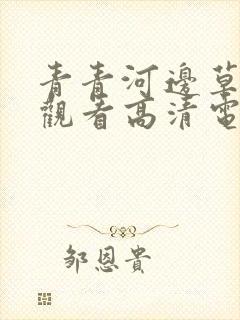 青青河邊草
觀看高清電
鄒恩貴